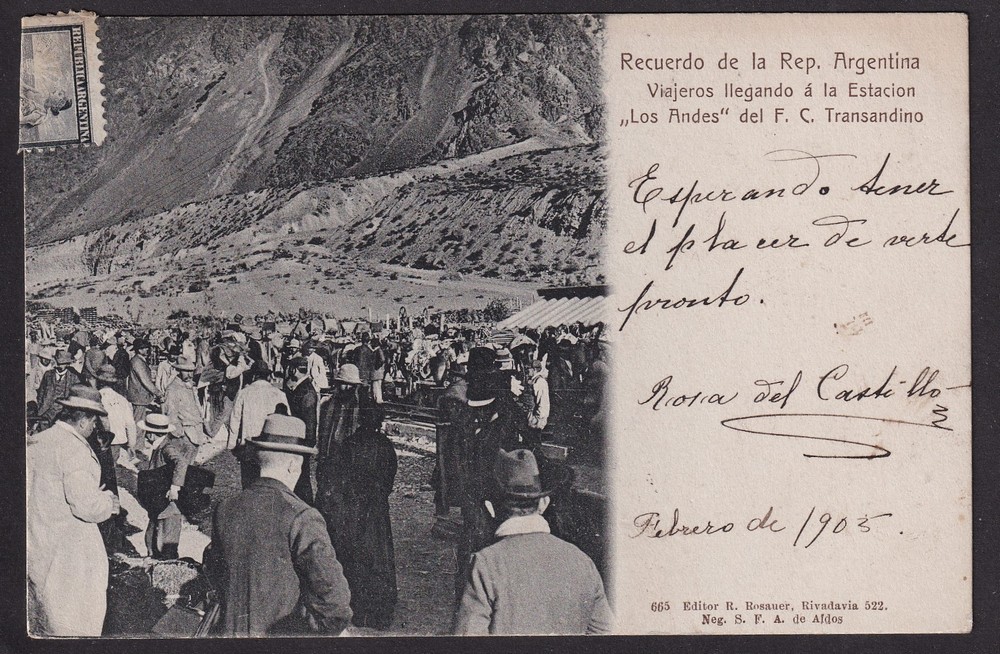 REPUBLICA ARGENTINA
Recuerdo de la Rep. Argentina
Viajeros llegando á la Estacion
„Los Andes“ del F. C. Transandino
Esperando tener
el placer de verte
pronto.
Rosa del Castillo
Febrero de 1905.
665 Editor R. Rosauer, Rivadavia 522.
Neg. S. F. A. de Afdos